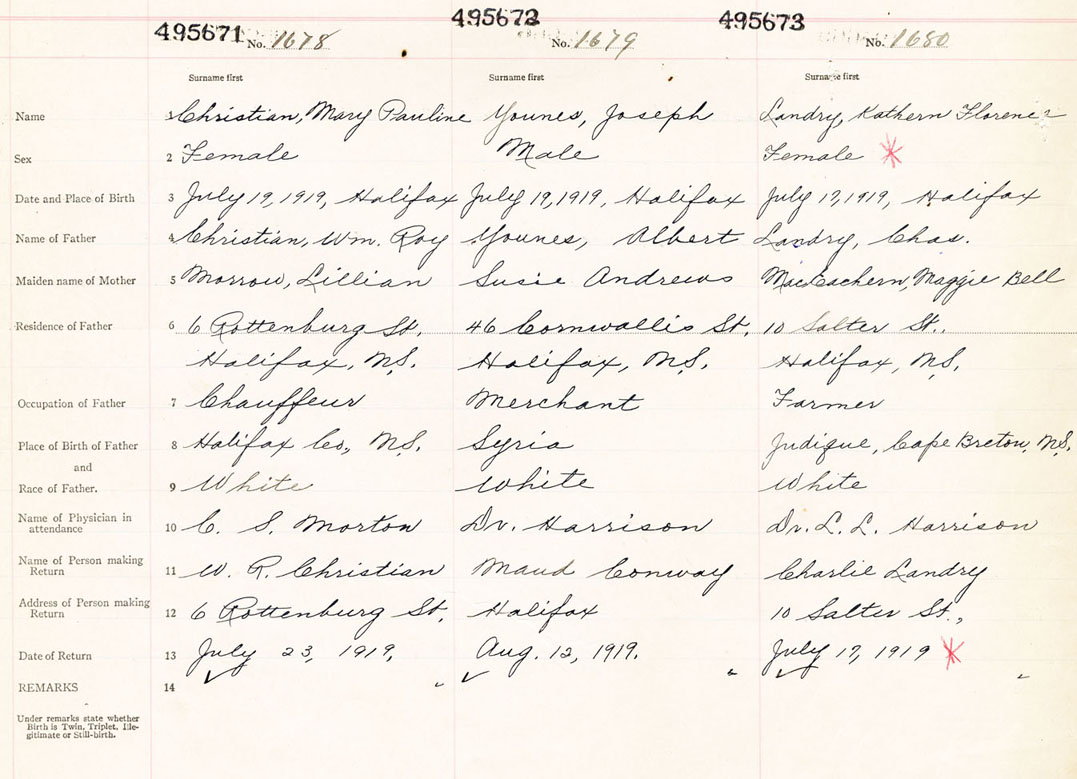 495671 No. 1678 495672 No. 1679 495673 No. 1680
Surname first Surname first Surname first
Name 1 Christian, Mary Pauline Younes, Joseph Landry, Kathern Florence
Sex 2 Female Male Female
Date and Place of Birth 3 July 19, 1919, Halifax July 19, 1919, Halifax July 17, 1919, Halifax
Name of Father 4 Christian, Wm. Roy Younes, Albert Landry, Chas.
Maiden name of Mother 5 Morrow, Lillian Susie Andrews MacEachern, Maggie Bell
Residence of Father 6 6 Rottenburg St, 46 Cornwallis St, 10 Salter St.,
Halifax, N.S. Halifax, N.S. Halifax, N.S.
Occupation of Father 7 Chauffeur Merchant Farmer
Place of Birth of Father 8 Halifax Co., N.S. Syria Judique, Cape Breton, N.S.
and
Race of Father. 9 White White White
Name of Physician in attendance 10 C. S. Morton Dr. Harrison Dr. L. L. Harrison
Name of Person making Return 11 W. R. Christian Maud Conway Charlie Landry
Address of Person making Return 12 6 Rottenburg St, Halifax 10 Salter St.,
Date of Return 13 July 23, 1919, Aug. 12, 1919. July 17, 1919
REMARKS 14
Under remarks state whether
Birth is Twin, Triplet, Ille-
gitimate or Still-birth.